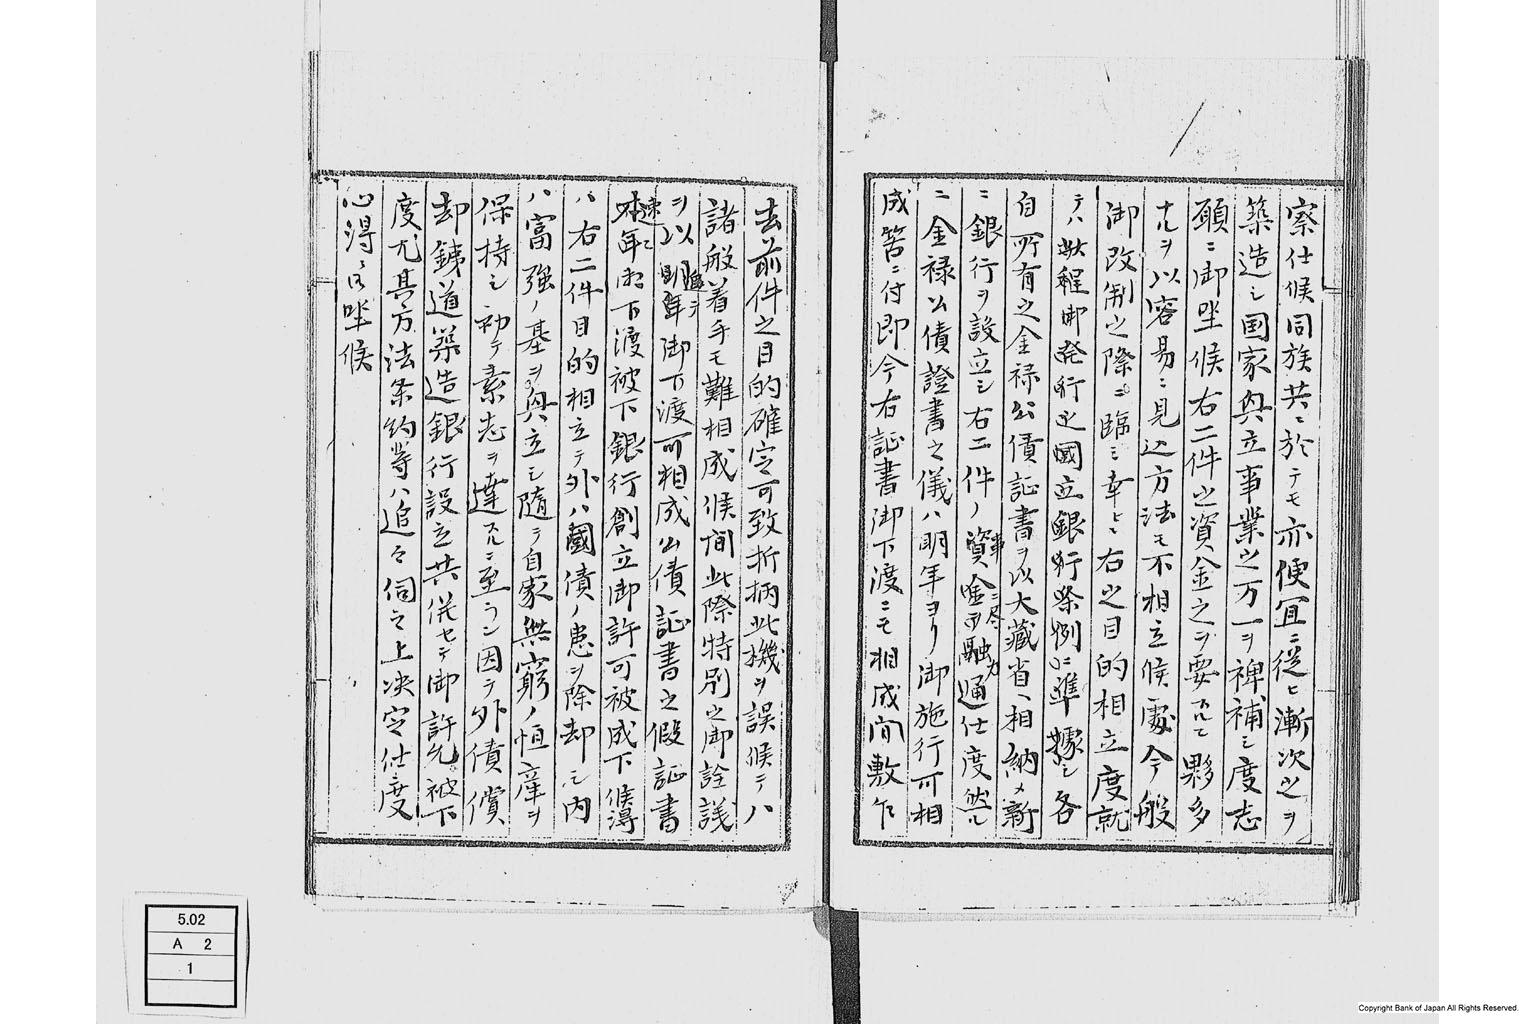 察仕候同族共ニ於テモ亦便宜ニ従ヒ漸次之ヲ
築造シ国家興立事業之万一ヲ裨補シ度志
願ニ御坐候右二件之資金之ヲ要スルヤ夥多
ナルヲ以容易ニ見込方法モ不相立候處今般
御改制之際ニ臨ミ幸ヒニ右之目的相立度就
テハ歎程御発行之國立銀行条例ニ準據シ各
自所有之金禄公債証書ヲ以大藏省ヘ相納メ新
ニ銀行ヲ設立シ右二件ノ資金ヲ融通仕度然ル
ニ金禄公債證書之儀ハ明年ヨリ御施行可相
成筈ニ付即今右証書御下渡ニモ相成間敷乍
去前件之目的確定可致折柄此機ヲ誤候テハ
諸般着手モ難相成候間此際特別之御詮議
ヲ以追テ御下渡可相成公債証書之假証書
速ニ御下渡被下銀行創立御許可被成下候得
ハ右二件目的相立テ外ハ國債ノ患ヲ除却シ内
ハ富強ノ基ヲ興立シ隨テ自家無窮ノ恒産ヲ
保持シ初テ素志ヲ達スルニ至ラン因テ外債償
却鉄道築造銀行設立共併セテ御許允被下
度尤其方法条約等ハ追々伺之上决定仕度
心得ニ御坐候
5.02
A 2
1
Copyright Bank of Japan All Rights Reserved.